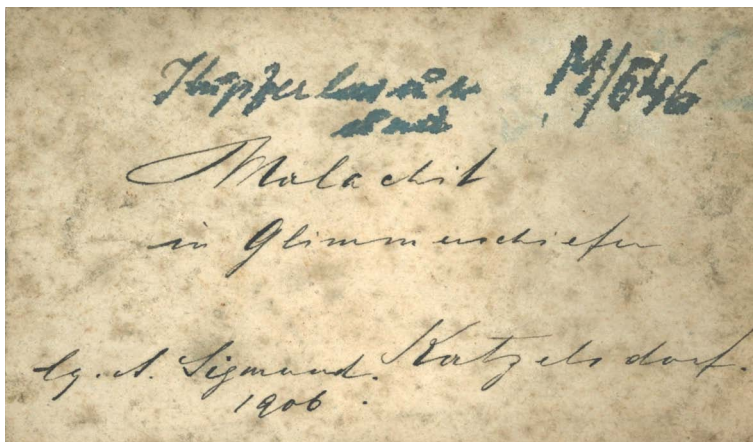 Kupferlasur M/646
und
Malachit
in Glimmerschiefer
lg. A. Sigmund. Katzelsdorf.
1906.